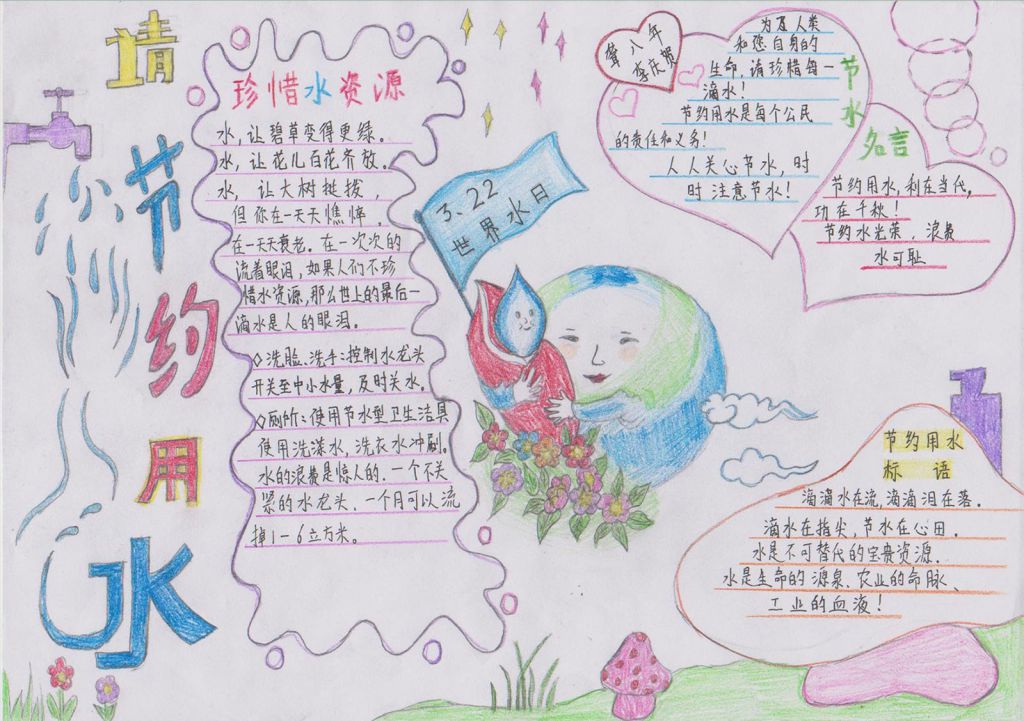 请
节
约
用
水
珍惜水资源
水，让碧草变得更绿。
水，让花儿百花齐放。
水，让大树挺拔，
但你在一天天憔悴，
在一天天衰老。在一次次的
流着眼泪，如果人们不珍
惜水资源，那么世上的最后一
滴水是人的眼泪。
◇洗脸、洗手：控制水龙头
开关至中小水量，及时关水。
◇厕所：使用节水型卫生洁具
使用洗漾水，洗衣水冲刷。
水的浪费是惊人的，一个不关
紧的水龙头，一个月可以流
掉1-6立方米。
3、22
世界水日
第八年
李庆贺
为及人类
和您自身的
生命，请珍惜每一
滴水！
节约用水是每个公民
的责任和义务！
人人关心节水，时
时注意节水！
节水名言
节约用水，利在当代，
功在千秋！
节约水光荣，浪费
水可耻
节约用水
标语
滴滴水在流，滴滴泪在落。
滴水在指尖，节水在心田。
水是不可替代的宝贵资源。
水是生命的源泉、农业的命脉、
工业的血液！